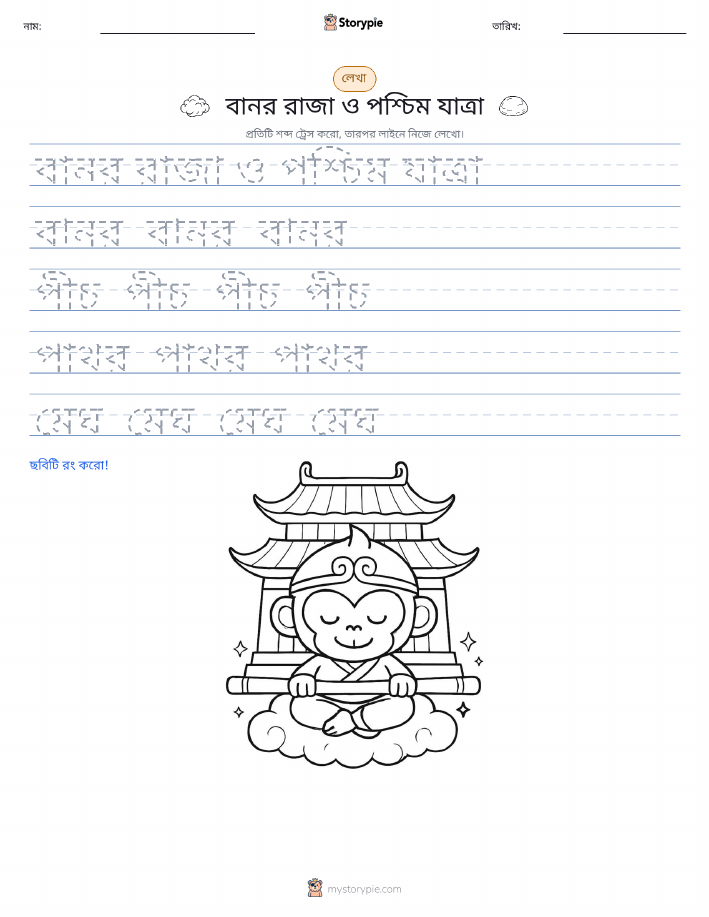 নাম:
Storypie
তারিখ:
লেখা
বানর রাজা ও পশ্চিম যাত্রা
প্রতিটি শব্দ ট্রেস করো, তারপর লাইনে নিজে লেখো।
বানর রাজা ও পশ্চিম যাত্রা
বানর বানর বানর
পীচ পীচ পীচ পীচ
পাথর পাথর পাথর
মেঘ মেঘ মেঘ মেঘ
ছবিটি রং করো!
mystorypie.com